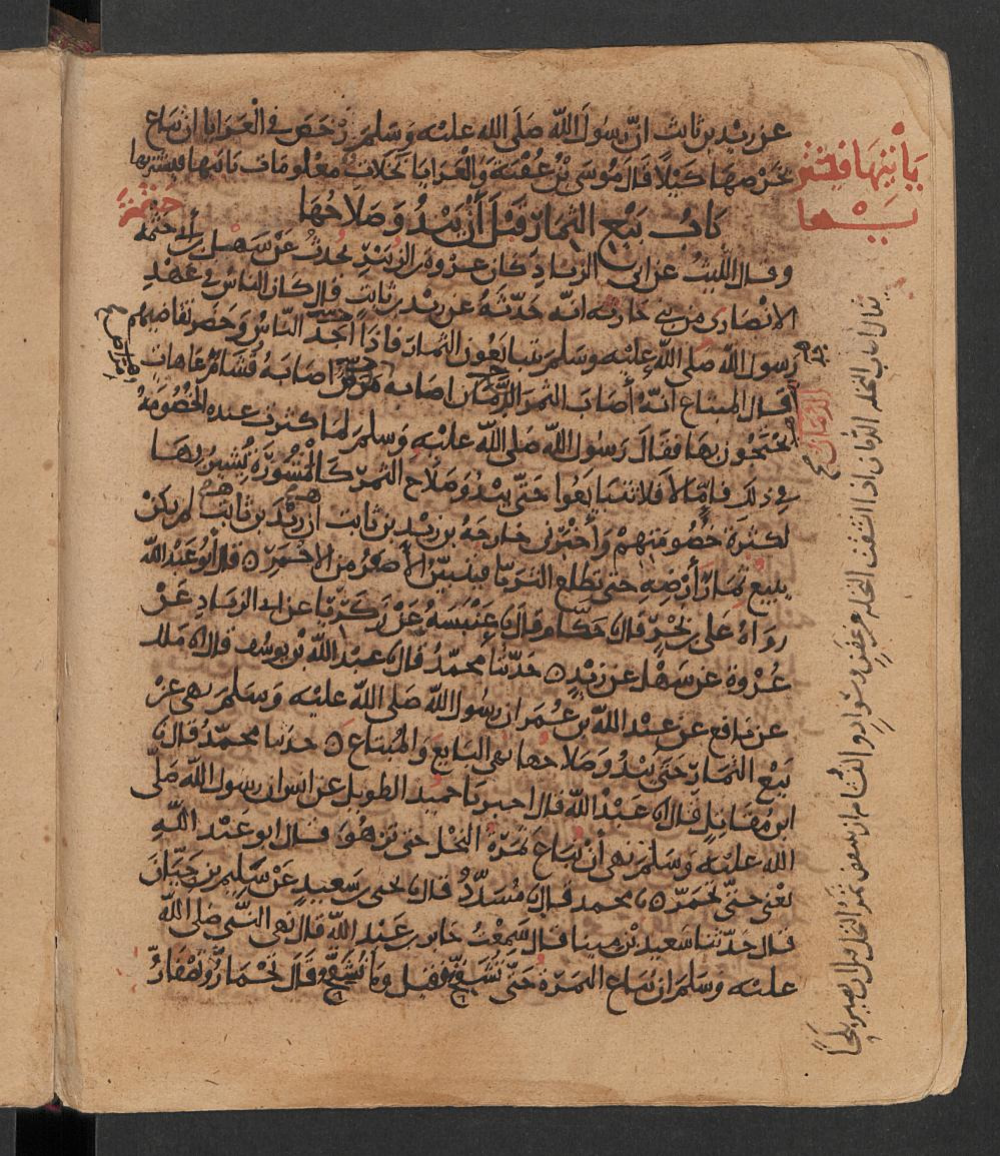 عن زيد بن ثابت انّ رسُولَ اللّه صَلَى الله عليْه وَسَلمَ رَخصَ في العَرَايا ان تباع
بخرْصهَا كيْلًا قال مُوسَى بْنُ عُقبَة وَالعَرايا نخلات معْلومَات ياتيها فيشتريها
يَاتيْهَا فيَشتر
يــهــا
بَاب بَيْع الثمَار قبْلَ أنْ يَبْدُ وَصَلاحُهَا
وقال الليث عن ابي الزناد كان عروة بن الزبَيْرِ يُحدث عَنْ سَهل بن أبي حثمة
حَثْمَةَ
الانْصَارى من بني حارثه انه حَدّثهُ عن زيْد بن ثابت قال كان الناسُ في عَهْدِ
رسول الله صَلى الله عليْه وسلمَ يتبايَعُون الثمارَ فاذا جَدَّ الناسُ وَحَضر تقاضيهم
قال المبتاع انهُ أصَابَ الثمرَ الدُّمَان اصَابه مُرَاض اصَابَهُ قُشَامٌ عَاهات
الدَّمَانُ
يَحْتجّون بهَا فقالَ رَسُول اللّه صَلى اللّه عليْه وَسَلمَ لمَا كثرت عنده الخُصُومَة
في ذلك فامّا لا فلا تتبَايَعوا حَتّى يبْدُوَ صَلاح الثمَر كالمشُورَة يُشيرُ بهَا
لكثرة خُصُومَتهمْ وَأخْبَرنى خارجَة بن زيْد بن ثابت أن زيْدَ بن ثابت لم يكنْ
يبيع ثمارَ أرْضِه حتى تطلع الثرَيّا فيتبيّنَ الأصْفرُ من الاحْمَر ٥ قال أبُو عَبْد اللّه
رواهُ عَلى بن بَحْرٍ قال حَكّام قال عَنْبَسَة عَنْ زكَريّا عن ابي الزناد عَنْ
عُرْوَة عَن سَهْل عَن زيْدٍ ٥ حَدّثنَا محمّدُ قال عبْدُ اللّه بْن يوسُف قال مَلك
عن نافع عن عبْد اللّه بْن عُمَر ان رسُول اللّه صَلى اللّه عليْه وَسَلمَ نهى عن
بَيْع الثمارَ حَتى يَبْدُوَ صَلاحها نهى البَايعَ وَالمُبتاعَ ٥ حدثنا محمّدُ قال
ابن مُقاتل قال عَبْدُ اللّه قال اخبرنا حميد الطويل عن انس ان رسول اللّه صَلى
الله عليْه وَسَلمَ نهى أنْ تُباعَ ثَمَرَة النخْل حتى تزهُوَ قال ابو عَبْد اللّه
يَعْنى حتّى تَحمَرّ ٥ محمد قال مُسَدّدُ قال يحيى بن سَعيد عَنْ سَليم بن حَيّان
قال حَدّثنا سَعيد بْن مينا قال سَمِعْتُ جابر بن عَبْد اللّه قال نهى النبي صَلى اللّه
عليْه وَسَلمَ ان تُبَاع الثمَرَة حَتى تُشَقِّحَ فقيل وما تُشَقِّح قالَ تَحْمَارُّ وَتَصْفَارُّ
يقال اصاب النخله الدمان اذا انشقت النخله من عفن وسَوادٍ والقشام ان ينتقض ثمرُ النخل قبل ان يصير بلحًا